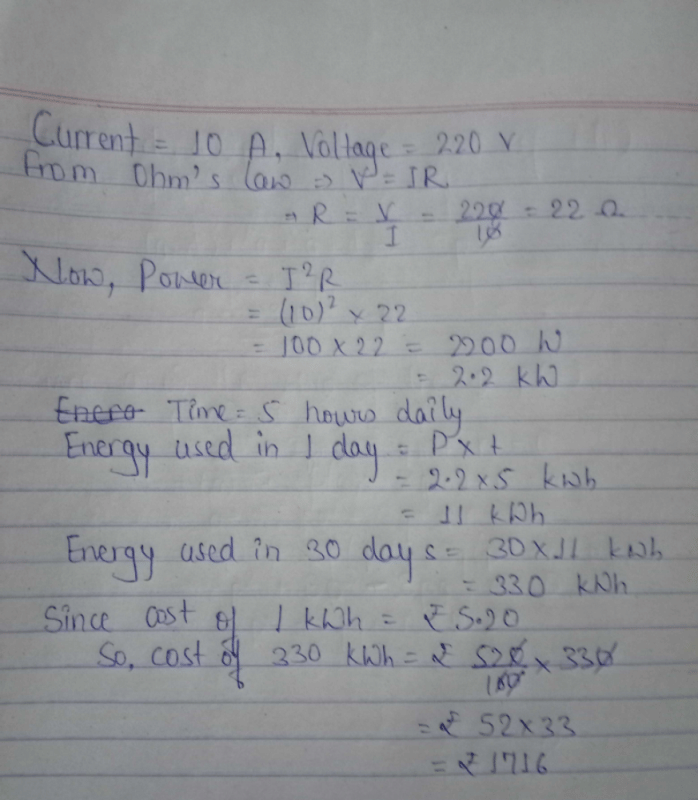 Current = 10 A, Voltage = 220 V
From Ohm's law ⇒ V = IR
⇒ R = V/I = 220/10 = 22 Ω
Now, Power = I²R
= (10)² × 22
= 100 × 22 = 2200 W
= 2.2 kW
Time = 5 hours daily
Energy used in 1 day = P × t
= 2.2 × 5 kWh
= 11 kWh
Energy used in 30 days = 30 × 11 kWh
= 330 kWh
Since cost of 1 kWh = ₹ 5.20
So, cost of 330 kWh = ₹ 520/100 × 330
= ₹ 52 × 33
= ₹ 1716